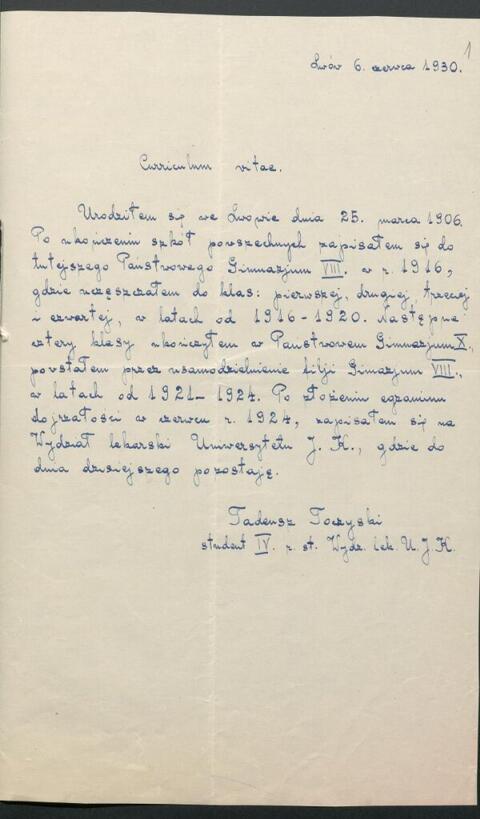 1
Lwów 6. czerwca 1930.
Curriculum vitae.
Urodziłem się we Lwowie dnia 25. marca 1906.
Po ukończeniu szkół powszechnych zapisałem się do
tutejszego Państwowego Gimnazjum VIII. w r. 1916,
gdzie uczęszczałem do klas: pierwszej, drugiej, trzeciej
i czwartej, w latach od 1916-1920. Następne
cztery klasy ukończyłem w Państwowem Gimnazjum X.,
powstałem przez usamodzielnienie filji Gimazjum VIII.,
w latach od 1921-1924. Po złożeniu egzaminu
dojrzałości w czerwcu r. 1924, zapisałem się na
Wydział lekarski Uniwersytetu J. K., gdzie do
dnia dzisiejszego pozostaję.
Tadeusz Toczyski
student IV. r. st. Wydz. lek. U. J. K.